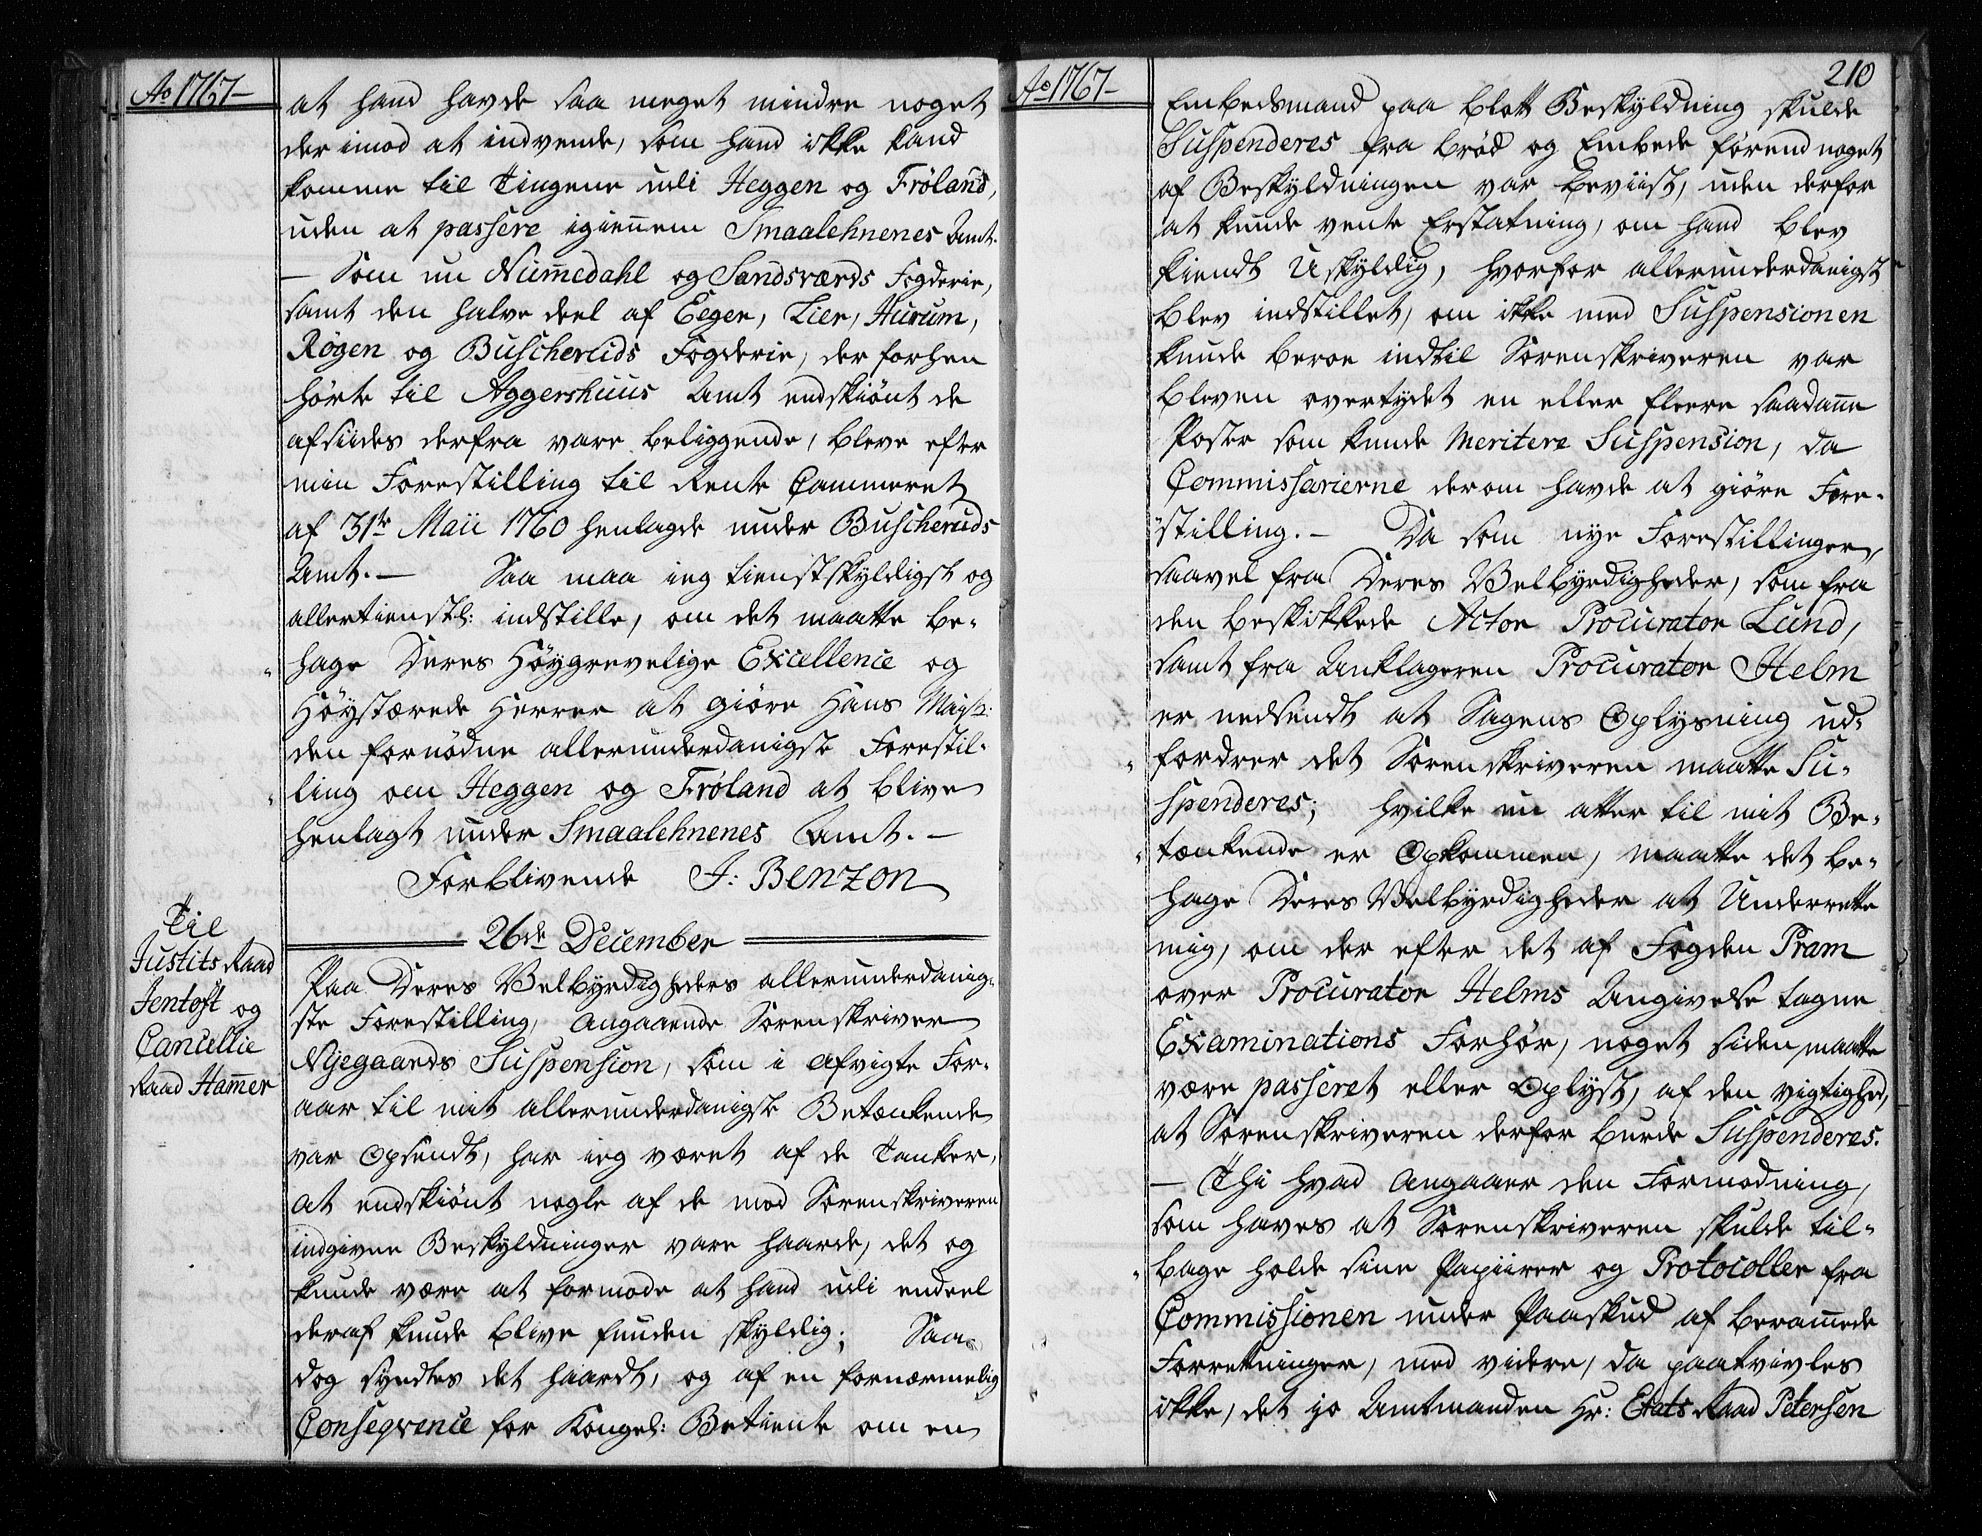 Ao 1767-
at hand havde saa meget mindre noget
der imod at indvende, som hand ikke kand
komme til Tingene udi Heggen og Frøland,
uden at passere igiennem Smaalehnenes Amt.
- Som nu Nummedahl og Sandsværds Fogderie,
samt den halve deel af Eeger, Lier, Hurum,
Røgen og Buscheruds Fogderie, der forhen
hørte til Aggershuus Amt endskiønt de
afsiides derfra vare beliggende, bleve efter
min Forestilling til Rente Cammeret
af 31te Maii 1760 henlagde under Buscheruds
Amt. - Saa maa ieg tienstskyldigst og
allertienstl: indstille, om det maatte be-
hage Deres Høygrevelige Excellence og
Høystærede Herrer at giøre Hans Mayst:
den fornødne allerunderdanigste Forestil-
ling om Heggen og Frøland at blive
henlagt under Smaalehnenes Amt. -
Forblivende J: Benzon
26de December
Til
Justits Raad
Jentoft og
Cancellie
Raad Ham̄er
Paa Deres Velbyrdigheders allerunderdanig-
ste Forestilling, angaaende Sorenskriver
Nyegaards Suspension, som i afvigte For-
aar til mit allerunderdanigste Betænkende
var Opsendt, har ieg været af de Tanker,
at endskiønt nogle af de mod Sorenskriveren
indgivne Beskyldninger vare haarde, det og
kunde være at formode at hand udi endeel
deraf kunde blive funden skyldig; Saa
dog syndtes det haardt, og af en fornærmelig
Conseqvence for Kongel: Betiente om en
Ao 1767-
210
Embedsmand paa blott Beskyldning skulde
Suspenderes fra brød og Embede førend noget
af Beskyldningen var beviist, uden derfor
at kunde vente Erstatning, om hand blev
kiendt Uskyldig, hvorfor allerunderdanigst
blev indstillet, om ikke med Suspensionen
kunde beroe indtil Sorenskriveren var
bleven overtydet en eller fleere saadan̄e
Poster som kunde meritere Suspension, da
Commissarierne derom havde at giøre Fore-
stilling. - Da som nye Forestillinger
saavel fra Deres Velbyrdigheder, som fra
den beskikkede Actor Procurator Lund,
samt fra Anklageren Procurator Helm
er nedsendt at Sagens Oplysning ud-
fordrer det Sorenskriveren maatte Su-
spenderes; hvilke nu atter til mit Be-
tænkende er Opkommen, maatte det be-
hage Deres Velbyrdigheder at Underrette
mig, om der efter det af Fogden Pram
over Procurator Helms Angivelse tagne
Examinations Forhør, noget siden maatte
være passeret eller Oplyst, af den vigtighed,
at Sorenskriveren derfor burde Suspenderes.
- Thi hvad angaaer den Formodning,
som haves at Sorenskriveren skulde til-
bage holde sine Papiirer og Protocoller fra
Commissionen under Paaskud af beram̄ede
Forretninger, med videre, da paatvivles
ikke, det jo Amtmanden Hr: Etats Raad Petersen